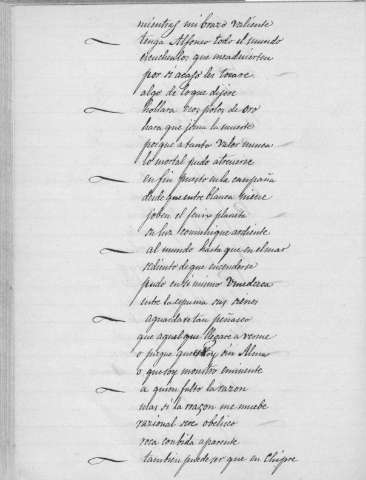 mientras mi brazo valiente
tenga Alfonso todo el mundo
escuchenlos que meadvierten
por si acaso les tocare
algo de loque dijere
hollara sus polos de oro
hara que jima la muerte
porque atanto valor nunca
lo mortal pudo atreverse
en fin puesto en la campaña
desde que entre blanca nieve
joben el fenix planeta
su luz comunique ardiente
al mundo hasta que en el mar
sediento de que encenderse
pudo en si mismo
entre la espuma sus
aguardare tan peñasco
que aquel que llegare a verme
o juzgue que soy sin Alma
o que soy monstro eminente
a quien falto la razon
mas si la razon me muebe
razional sere obelisco
roca conbida aparente
tambien puede ser que en Chipre